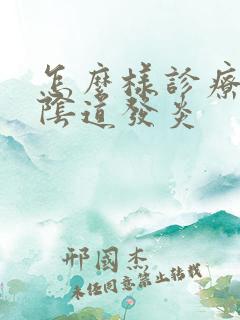 怎麼樣診療
陰道發炎
邢國杰
未經同意禁止轉載